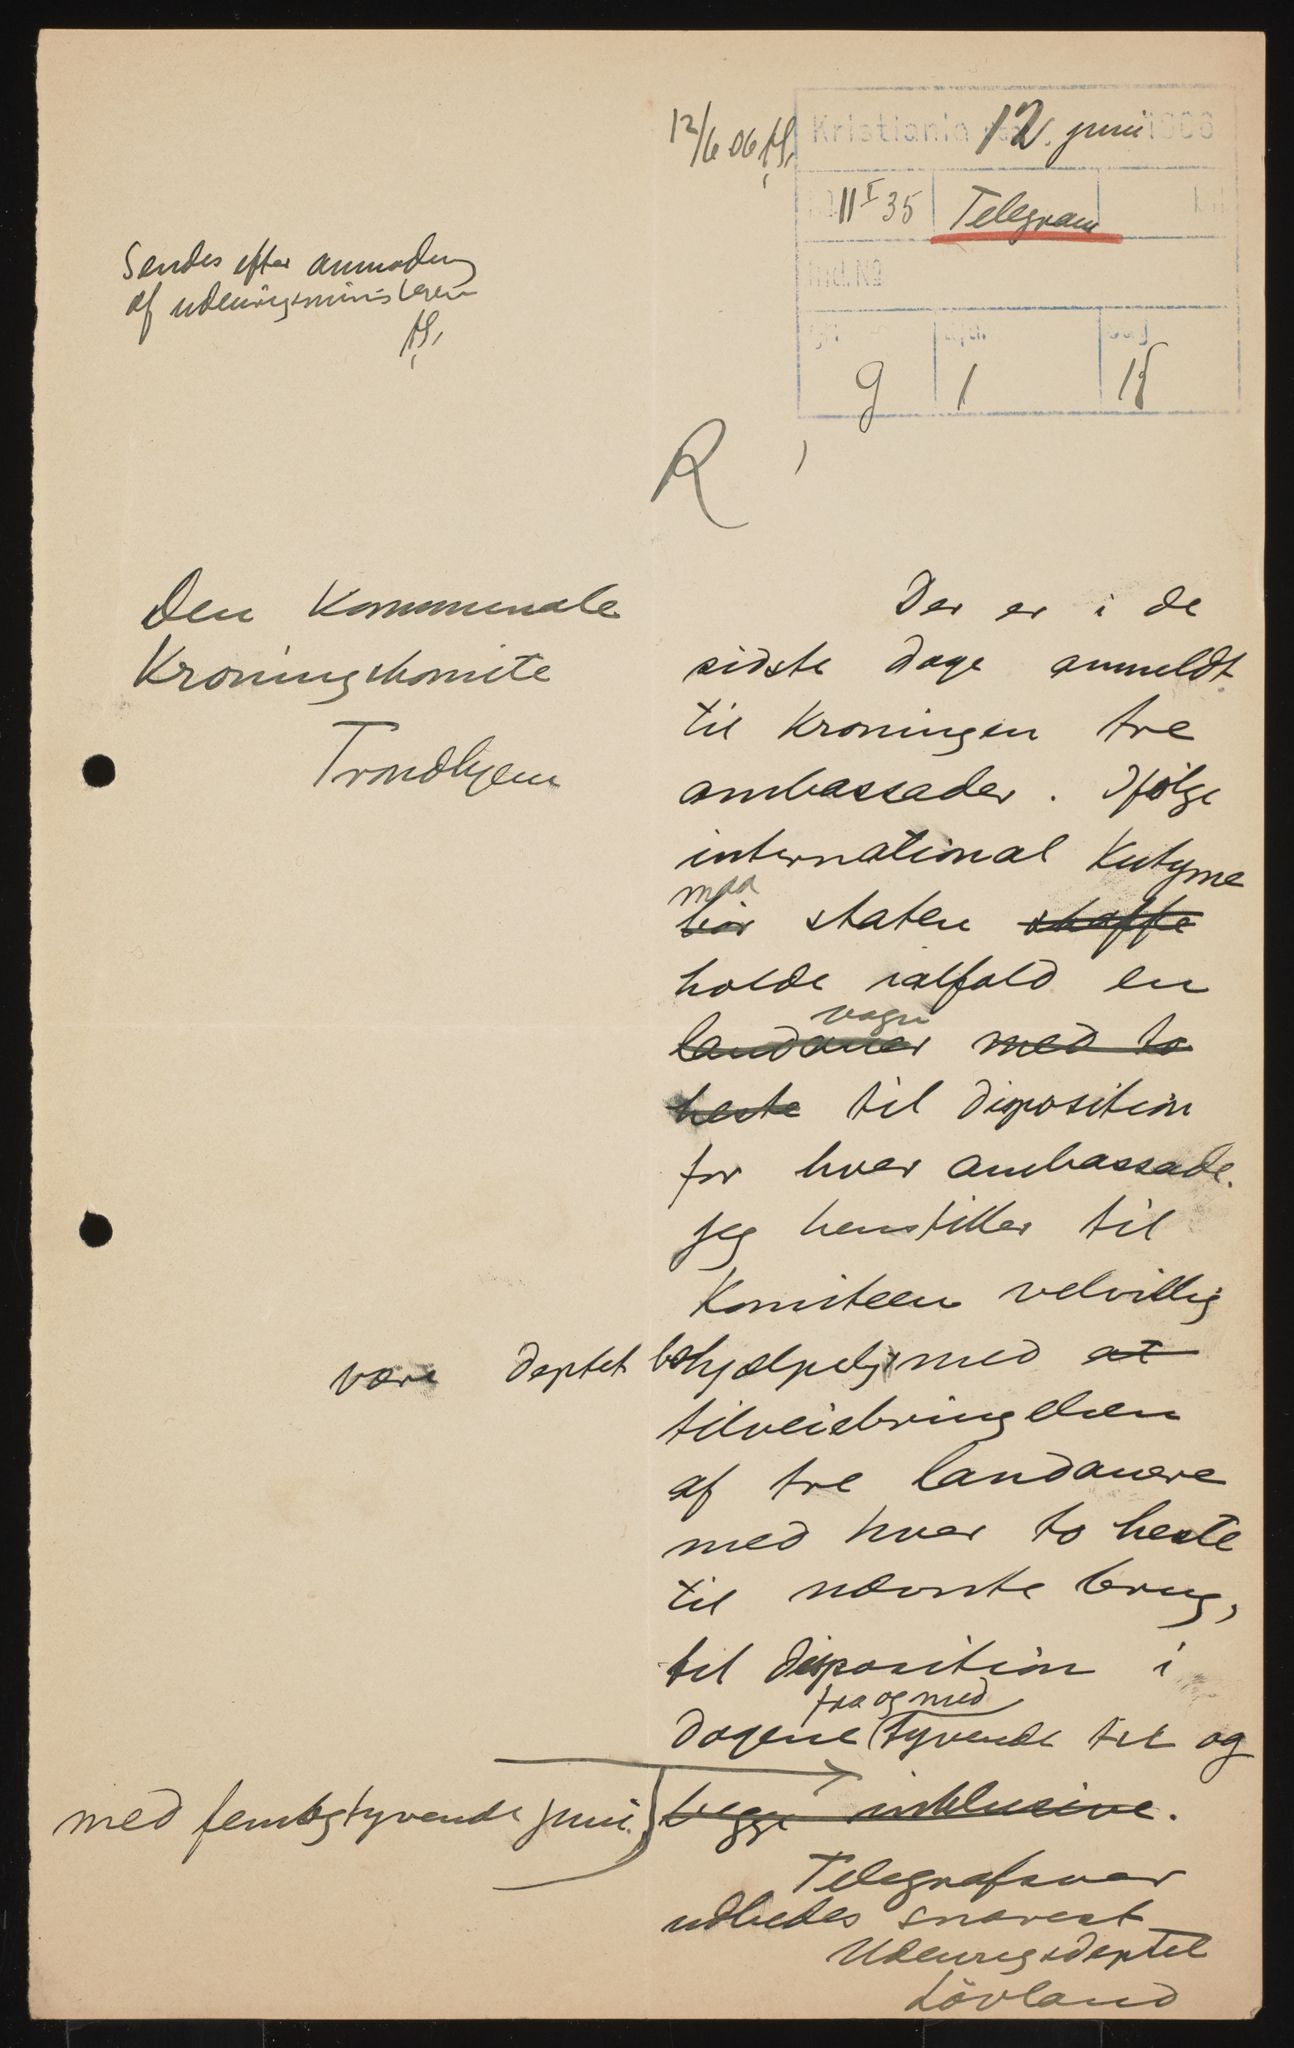 12/6 06
Kristiania 12. juni 1906
11 I 35 Telegram
Ind. No
9 1 18
Sendes efter anmodning
af udenrigsministeren
R
Den Kommunale
Kroningskomite
Trondhjem
Der er i de
sidste dage anmeldt
til Kroningen tre
ambassader. Ifølge
international Kutyme
maa
bør staten skaffe
holde ialfald en
vogn
landauer med to
heste til disposition
for hver ambassade.
Jeg henstiller til
Komiteen velvillig
være deptet behjælpelig med at
tilveiebringelsen
af tre landauere
med hver to heste
til nævnte brug,
til disposition i
fra og med
dagene tyvende til og
med femogtyvende juni. begge inklusive.
Telegrafsvar
udbedes snarest
Udenrigsdeptet
Lövland